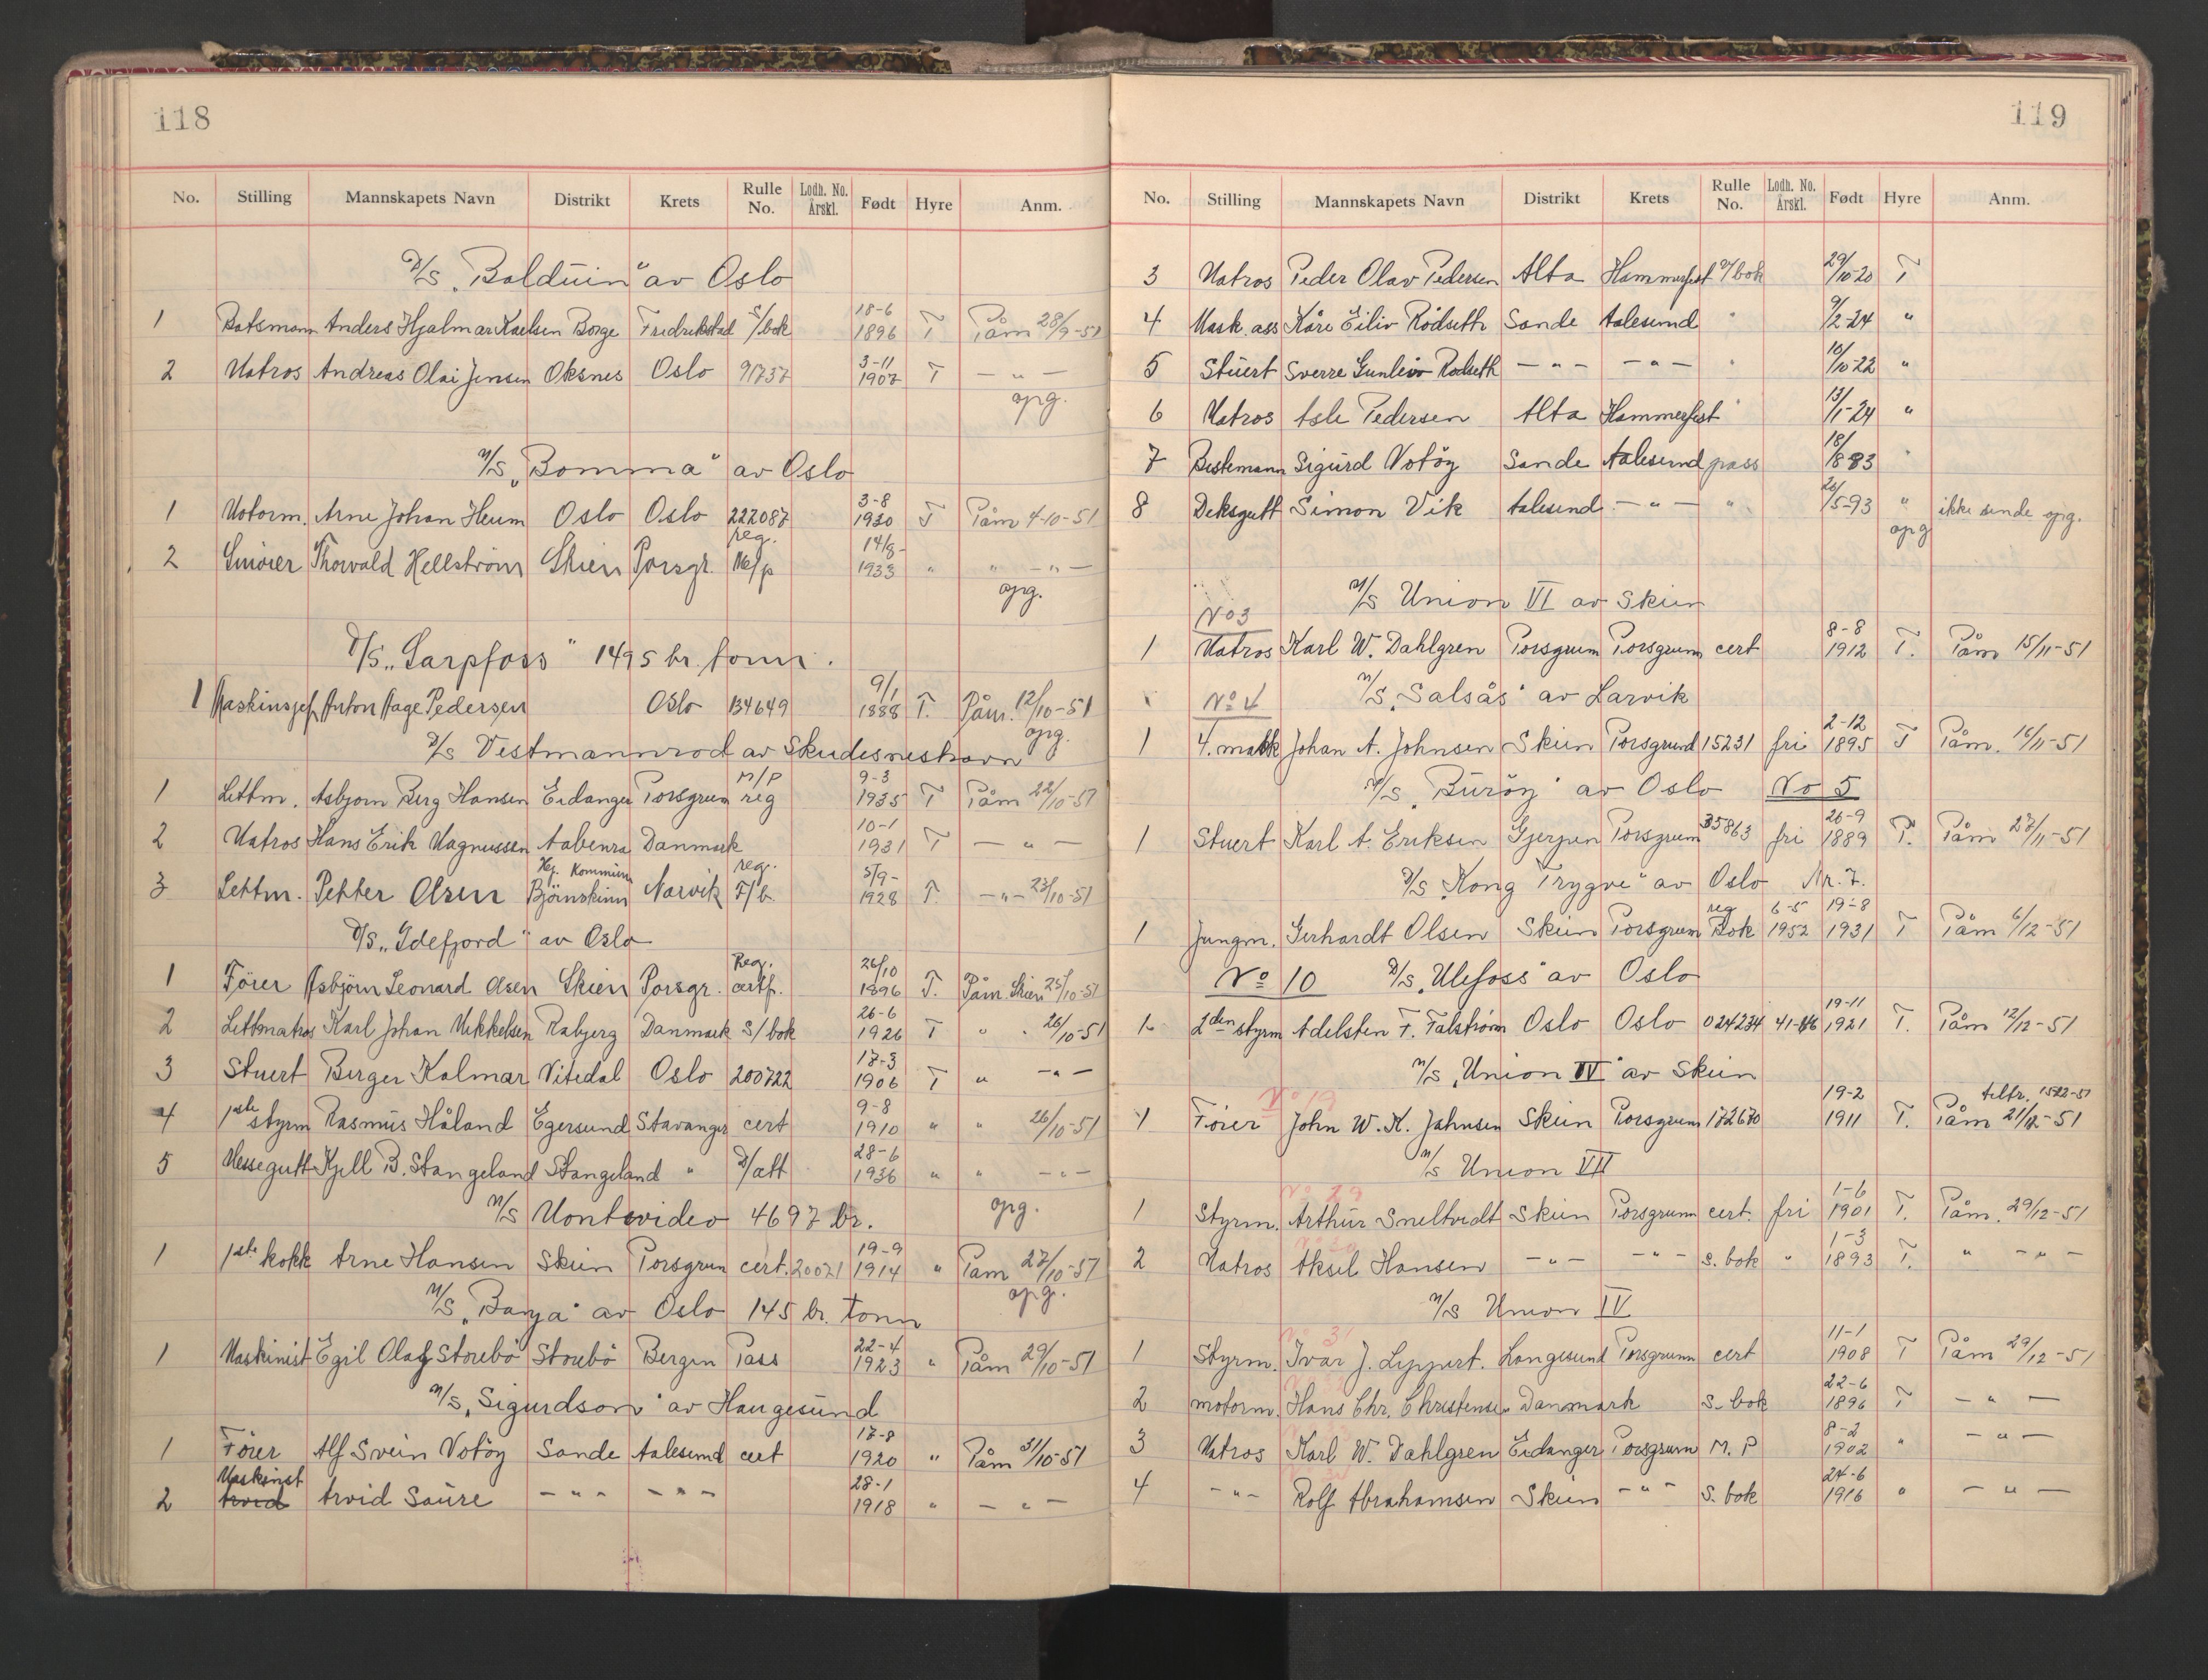 118
No. Stilling Mannskapets Navn Distrikt Krets Rulle No. Lodh. No. Årskl. Født Hyre Anm.
D/S „Balduin" av Oslo
1 Batsmann Anders Hjalmar Karlsen Borge Fredrikstad S/bok 18-6 1896 T Påm 28/9-51
2 Matros Andreas Olai Jensen Oksnes Oslo 91737 3-11 1907 T — " —
opg.
M/S „Bomma" av Oslo
1 Motorm. Arne Johan Heum Oslo Oslo 222087 3-8 1930 T Påm 4-10-51
2 Smører Thorvald Hellström Skien Porsgr. reg. M/p 14/8- 1933 " " — " —
opg.
D/S „Sarpfoss" 1495 br. tonn.
1 Maskinsjef Anton Aage Pedersen Oslo 134649 9/1 1888 T. Påm. 12/10-51
opg.
D/S Vestmannrod av Skudesneshavn
1 Lettm. Asbjorn Berg Hansen Eidanger Porsgrunn M/P reg 9-3 1935 T Påm 22/10-51
2 Matros Hans Erik Magnussen Aabenra Danmark 10-1 1931 T — " —
3 Lettm. Petter Olsen Bjørnskinn Narvik reg. F/b. 5/9- 1928 T. — " — 23/10-51
D/S „Idefjord" av Oslo
1 Förer Asbjörn Leonard Olsen Skien Porsgr. Reg. certf. 26/10 1896 T. Påm. Skien 25/10-51
2 Lettmatros Karl Johan Mikkelsen Rabjerg Danmark S/bok 26-6 1926 T " " 26/10-51
3 Stuert Berger Kalmar Vitedal Oslo 200722 17-3 1906 T " — " —
4 1ste styrm Rasmus Håland Egersund Stavanger cert 9-8 1910 " " 26/10-51
5 Messegutt Kjell B. Stangeland Stangeland " D/att 28-6 1936 " " — " —
M/S Montevideo 4697 br. opg.
1 1ste kokk Arne Hansen Skien Porsgrun cert. 20021 19-9 1914 " Påm 27/10-51
opg.
M/S „Banya" av Oslo 145 br. tonn
1 Maskinist Egil Olaf Storebö Storebö Bergen Pass 22-4 1923 " Påm 29/10-51
M/S „Sigurdson" av Haugesund
1 Förer Alf Svein Votöy Sande Aalesund cert 17-8 1920 " Påm 31/10-51
2 Maskinst Arvid Arvid Saure — " — — " — 28-1 1918 " — " —
119
No. Stilling Mannskapets Navn Distrikt Krets Rulle No. Lodh. No. Årskl. Født Hyre Anm.
3 Matros Peder Olav Pedersen Alta Hammerfest S/bok 29/10-20 T
4 Mask. ass Kåre Eiliv Rödseth Sande Aalesund " 9/2-24 "
5 Stuert Sverre Gunleiv Rödseth — " — — " — " 10/10-22 "
6 Matros Asle Pedersen Alta Hammerfest " 13/1-24 "
7 Bestemann Sigurd Votöy Sande Aalesund pass 18/8 83 "
8 Deksgutt Simon Vik Aalesund — " — " 20/5-93 " ikke sende opg.
opg
M/S Union VI av Skien
No 3
1 Matros Karl W. Dahlgren Porsgrunn Porsgrunn cert 8-8 1912 T. Påm 15/11-51
No 4 M/S „Salsås" av Larvik
1 4. mask Johan A. Johnsen Skien Porsgrund 15231 fri 2-12 1895 T Påm. 16/11-51
M/S „Buröy" av Oslo No 5
1 Stuert Karl A. Eriksen Gjerpen Porsgrunn 35863 fri 26-9 1889 T. Påm 27/11-51
D/S „Kong Trygve" av Oslo Nr. 7.
1 Jungm. Gerhardt Olsen Skien Porsgrunn reg Bok 6-5 1952 19-8 1931 T Påm 6/12-51
No 10 D/S „Ulefoss" av Oslo
1. 2den styrm Adelsten F. Falström Oslo Oslo 024234 41-46 19-11 1921 T. Påm 12/12-51
M/S „Union IV" av Skien
No 19
1 Förer John W. K. Jahnsen Skien Porsgrunn 172670 19-2 1911 T. tiltr. 1522-51 Påm 21/12-51
M/S Union VII
No 29
1 Styrm. Arthur Sneltvedt Skien Porsgrunn cert. fri 1-6 1901 T. Påm. 29/12-51
2 Matros Aksel Hansen — " — — " — s. bok " 1-3 1893 T. " — " —
M/S Union IV
No 31
1 Styrm. Ivar J. Lippert. Langesund Porsgrunn cert 11-1 1908 T Påm 29/12-51
2 motorm. Hans Chr. Christensen Danmark S. bok 22-6 1896 T — " —
3 Matros Karl W. Dahlgren Eidanger Porsgrunn M. P 8-2 1902 " — " —
4 — " — Rolf Abrahamsen Skien — " — S. bok 24-6 1916 " — " —